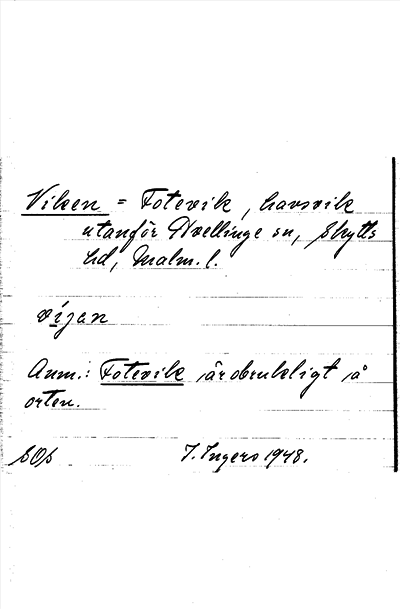 Viken = Fotevik, havsvik
utanför Hvellinge sn, Skytts
hd, Malm. l.
víjan
Anm.: Fotevik är obrukligt å
orten.
I. Ingers 1948.